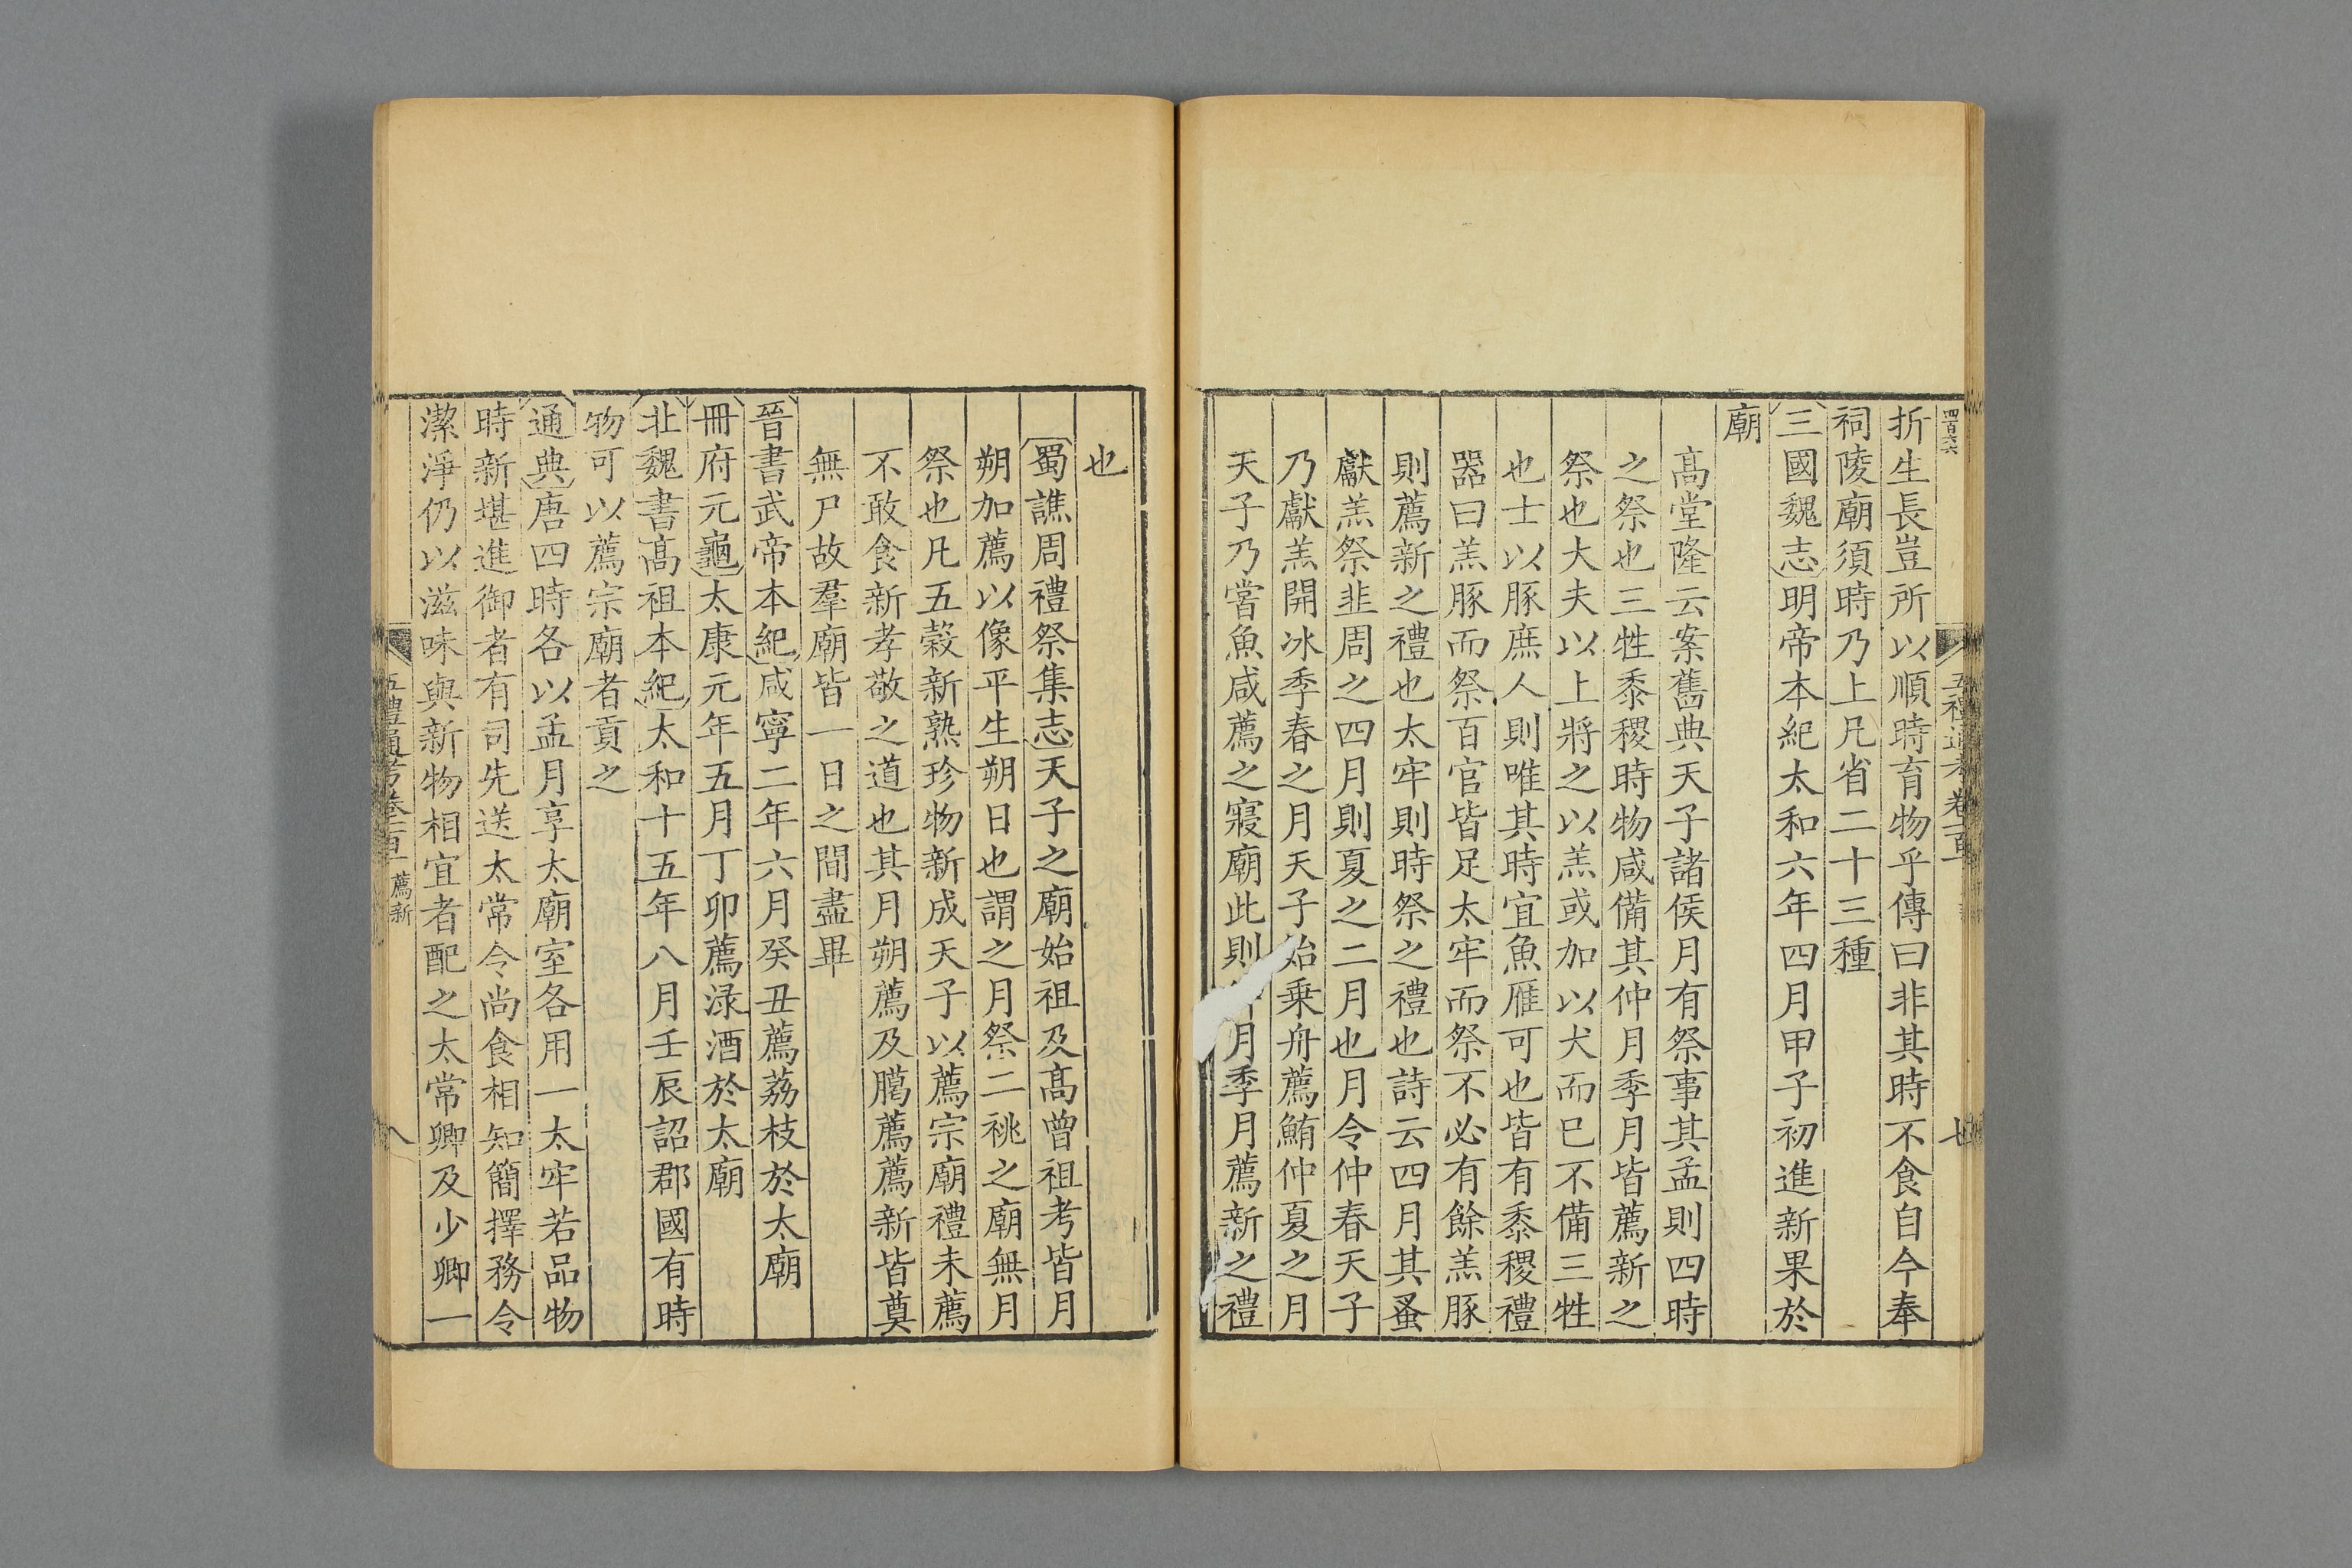 四百六六
折生長豈所以順時育物乎傳曰非其時不食自今奉
祠陵廟須時乃上凡省二十三種
三國魏志明帝本紀太和六年四月甲子初進新果於
廟
高堂隆云案舊典天子諸侯月有祭事其孟則四時
之祭也三牲黍稷時物咸備其仲月季月皆薦新之
祭也大夫以上將之以羔或加以犬而已不備三牲
也士以豚庶人則唯其時宜魚雁可也皆有黍稷禮
器曰羔豚而祭百官皆足太牢而祭不必有餘羔豚
則薦新之禮也太牢則時祭之禮也詩云四月其蚤
獻羔祭韭周之四月則夏之二月也月令仲春天子
乃獻羔開冰季春之月天子始乘舟薦鮪仲夏之月
天子乃嘗魚咸薦之寢廟此則月季月薦新之禮
也
蜀譙周禮祭集志天子之廟始祖及高曾祖考皆月
朔加薦以像平生朔日也謂之月祭二祧之廟無月
祭也凡五穀新熟珍物新成天子以薦宗廟禮未薦
不敢食新孝敬之道也其月朔薦及臈薦薦新皆奠
無尸故羣廟皆一日之間盡畢
晉書武帝本紀咸寧二年六月癸丑薦荔枝於太廟
冊府元龜太康元年五月丁卯薦淥酒於太廟
北魏書高祖本紀太和十五年八月壬辰詔郡國有時
物可以薦宗廟者貢之
通典唐四時各以孟月享太廟室各用一太牢若品物
時新堪進御者有司先送太常令尚食相知簡擇務令
潔淨仍以滋味與新物相宜者配之太常卿及少卿一
五禮通考卷一百 薦新 八